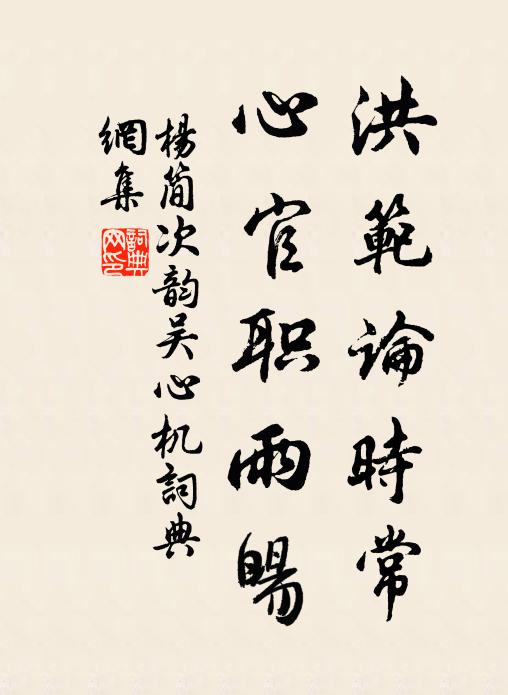 洪範論時常
心官职雨暘
楊简次韵吴心机詞典
網集
詞典
网印